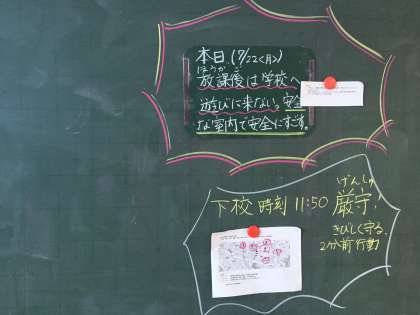 本日(7/22<月>)
ほうかご
放課後は学校へ
遊びに来ない。安全
な室内で安全にすごす。
げんしゅ
下校時刻 11:50 厳守!
きびしく守る。
2分前行動